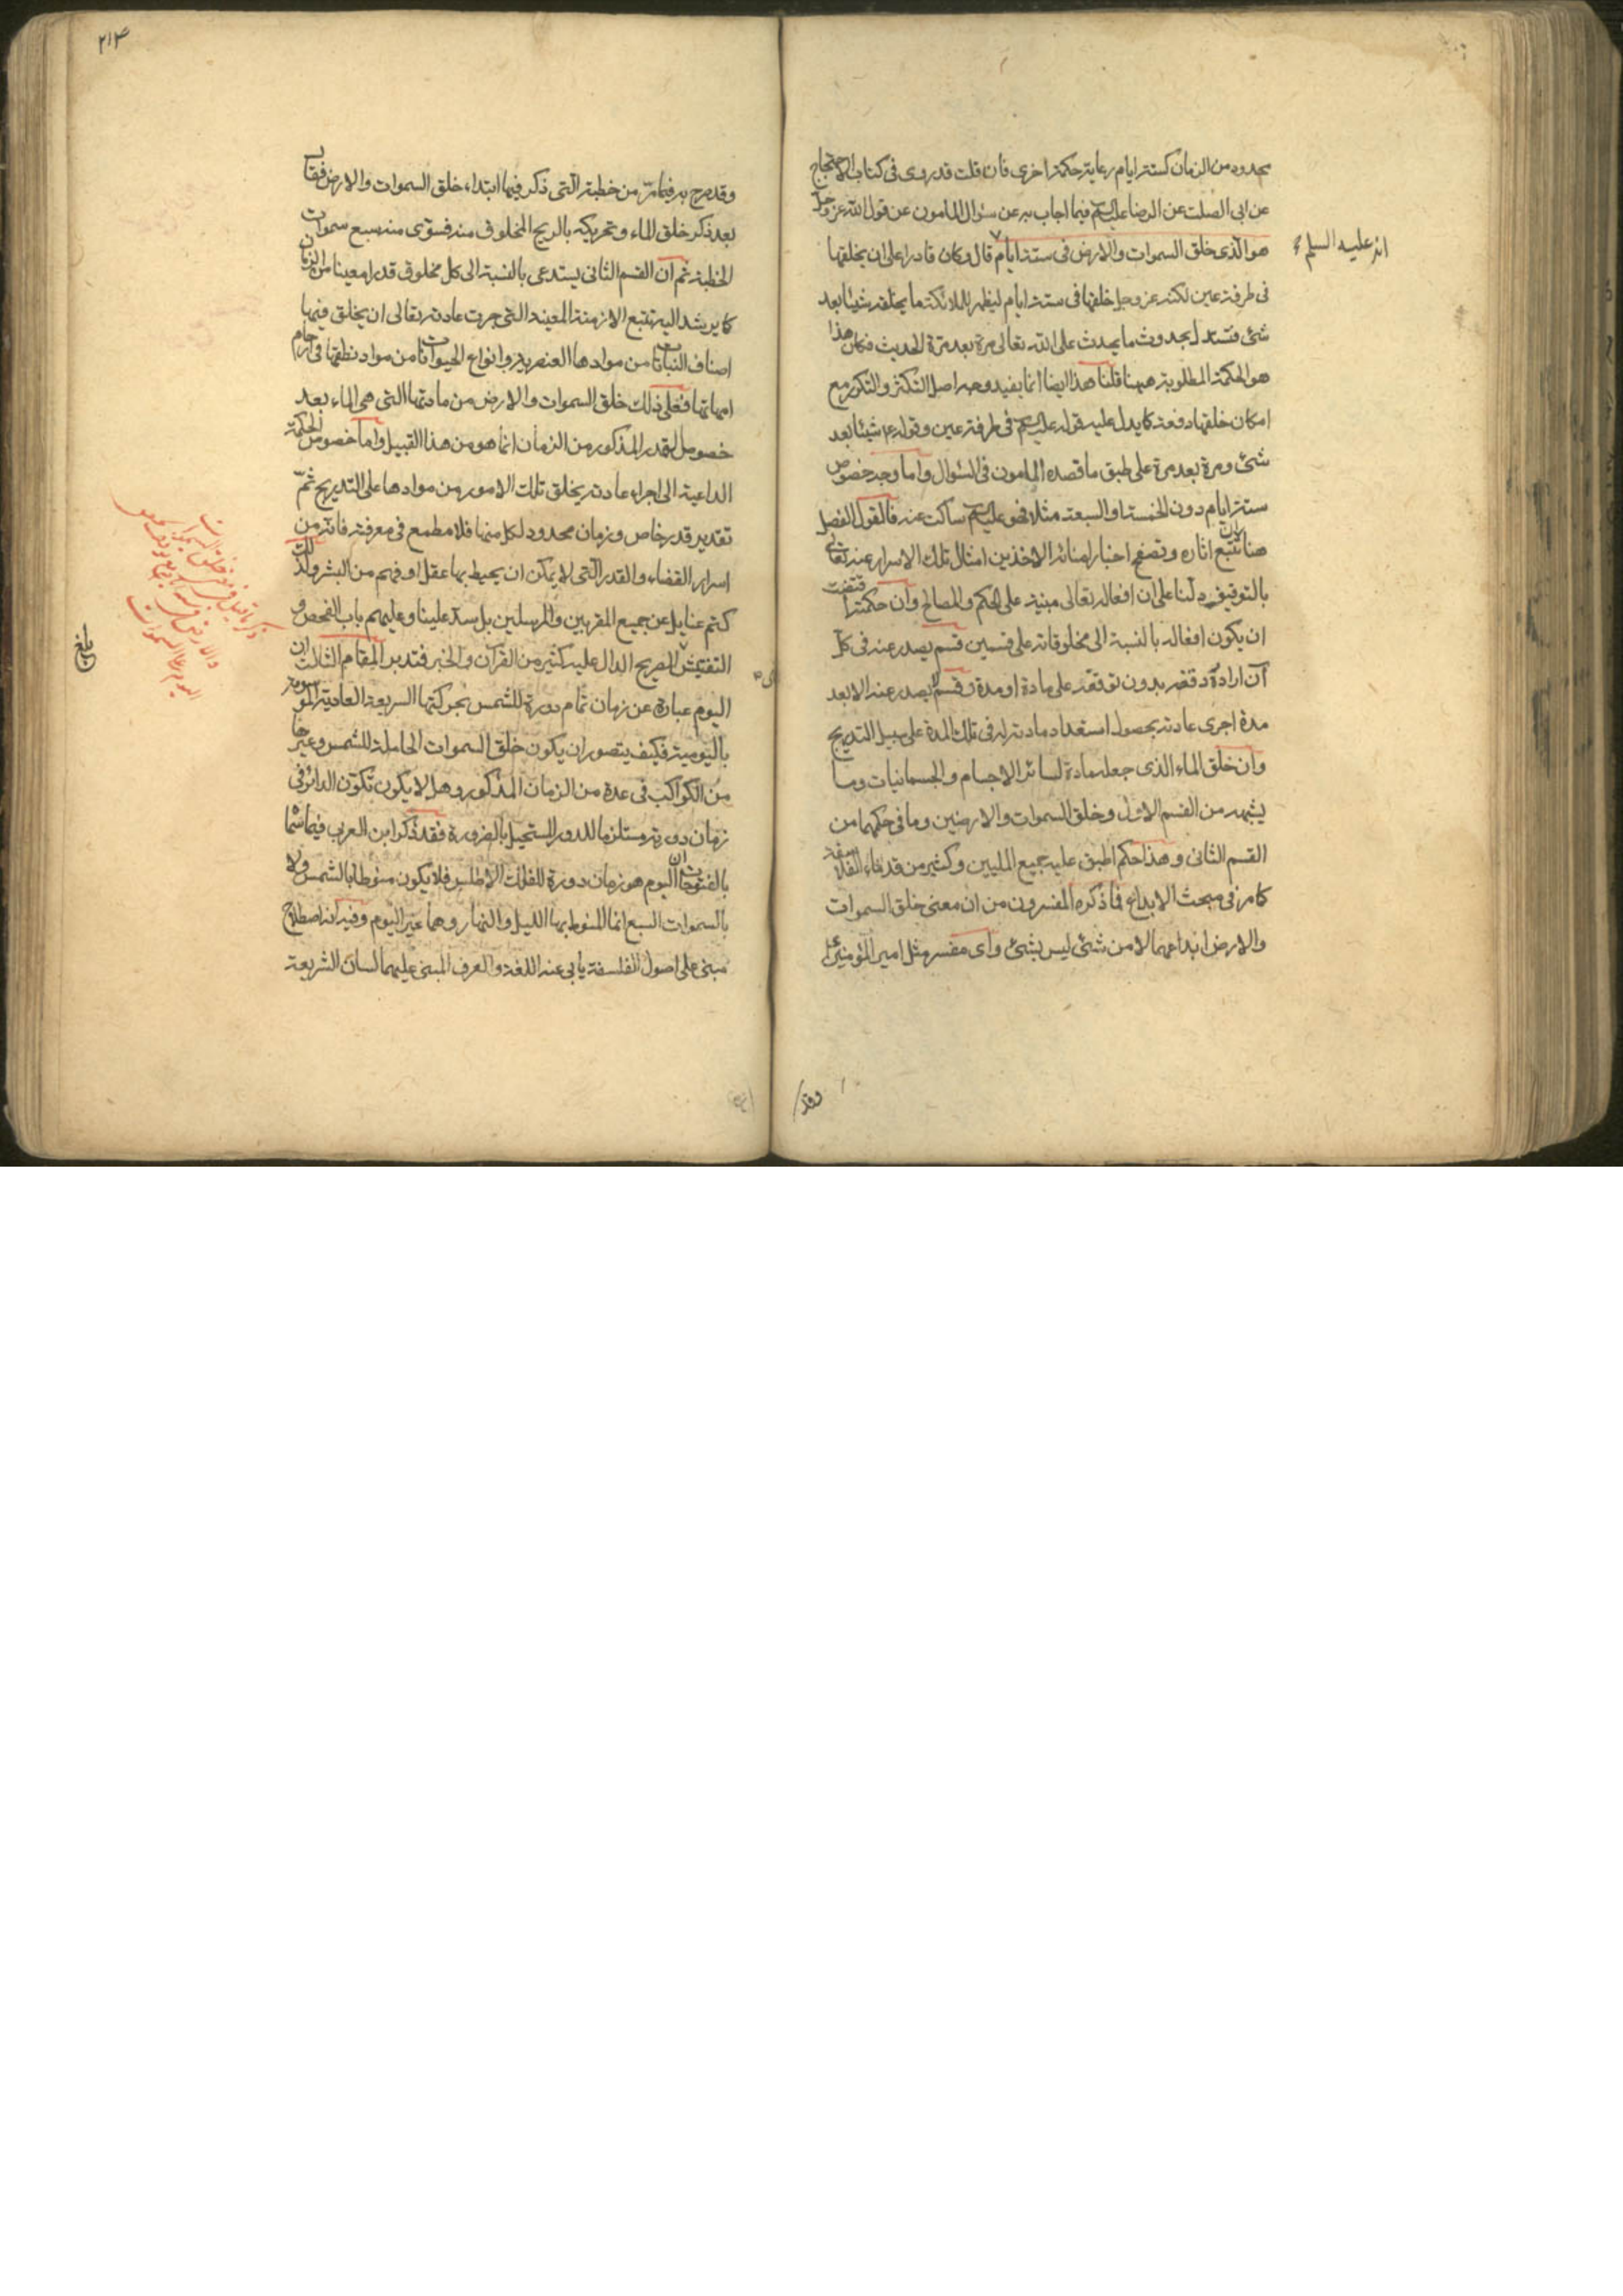 محدود من الزمان كستة ايام رعاية حكمة اخرى فان قلت قد روى فى كتاب الاحتجاج
عن ابى الصلت عن الرضا عليه السلم فيما اجاب به عن سئوال المامون عن قول الله عز وجل
هو الذى خلق السموات والارض فى ستة ايام قال وكان قادرا على ان يخلقها
انه عليه السلم
فى طرفة عين لكنه عز وجل خلقها فى ستة ايام ليظهر للملائكة ما يخلقه شيئا بعد
شئ فتستدل بحدوث ما يحدث على الله تعالى مرة بعد مرة الحديث فكان هذا
هو الحكمة المطلوبة ههنا قلنا هذا ايضا انما يفيد وجه اصل التكثر والتكرر مع
امكان خلقها دفعة كما يدل عليه قوله عليه السلم فى طرفة عين وقوله ع شيئا بعد
شئ ومرة بعد مرة على طبق ما قصده المامون فى السئوال واما وجه خصوص
ستة ايام دون الخمسة او السبعة مثلا فهو عليه السلم ساكت عنه فالقول الفصل
هنا تتبع اثاره وتصفح اخبار امنائه الاخذين امثال تلك الاسرار عنه تعالى
بالتوفيق دلنا على ان افعاله تعالى مبنية على الحكم والمصالح وان حكمته اقتضت
ان يكون افعاله بالنسبة الى مخلوقاته على قسمين قسم يصدر عنه فى كل
آن اراده دفعة بدون توقفه على مادة او مدة وقسم لا يصدر عنه الا بعد
مدة اجرى عادته بحصول استعداد مادته له فى تلك المدة على سبيل التدريج
وان خلق الماء الذى جعله مادة لسائر الاجسام والجسمانيات وما
يشبهه من القسم الاول وخلق السموات والارضين وما فى حكمهما من
القسم الثانى وهذا حكم اطبق عليه جميع المليين وكثير من قدماء الفلاسفة
كما مر فى مبحث الابداع فما ذكره المفسرون من ان معنى خلق السموات
والارض ابداعهما لا من شئ ليس بشئ واى مفسر مثل امير المؤمنين ع
وقد
٢١٣
وقد صرح به فيما مر من خطبته التى ذكر فيها ابتداء خلق السموات والارض فقال
بعد ذكر خلق الماء وتحريكه بالريح المخلوق منه فسوى منه سبع سموات
الخطبة ثم ان القسم الثانى يستدعى بالنسبة الى كل مخلوق قدرا معينا من الزمان
كما يرشد اليه تتبع الازمنة المعينة التى جرت عادته تعالى ان يخلق فيها
اصناف النباتات من موادها العنصرية وانواع الحيوانات من مواد نطفها فى ارحام
امهاتها فعلى ذلك خلق السموات والارض من مادتها التى هى الماء بعد
خصوص القدر المذكور من الزمان انما هو من هذا القبيل واما خصوص الحكمة
الداعية الى اجراء عادته بخلق تلك الامور من موادها على التدريج ثم
تقدير قدر خاص وزمان محدود لكل منها فلا مطمع فى معرفته فانه من
اسرار القضاء والقدر التى لا يمكن ان يحيط بها عقل او فهم من البشر ولذلك
كتم عنا بل عن جميع المقربين والمرسلين بل سد علينا وعليهم باب الفحص و
التفتيش الصريح الدال عليه كثير من القرآن والخبر فتدبر المقام الثالث ان
اليوم عبارة عن زمان تمام دورة للشمس بحركتها السريعة العادية الموسومة
باليومية فكيف يتصور ان يكون خلق السموات الحاملة للشمس وغيرها
من الكواكب فى عدة من الزمان المذكور وهل لا يكون تكون الدائر فى
زمان دورته مستلزما للدور المستحيل بالضرورة فقد ذكر ابن العربى فيما سماه
بالفتوحات ان اليوم هو زمان دورة للفلك الاطلس فلا يكون منوطا بالشمس ولا
بالسموات السبع انما المنوط بها الليل والنهار وهما غير اليوم وفيه انه اصطلاح
مبنى على اصول الفلسفة يابى عنه اللغة والعرف المبنى عليهما لسان الشريعة
بلغ